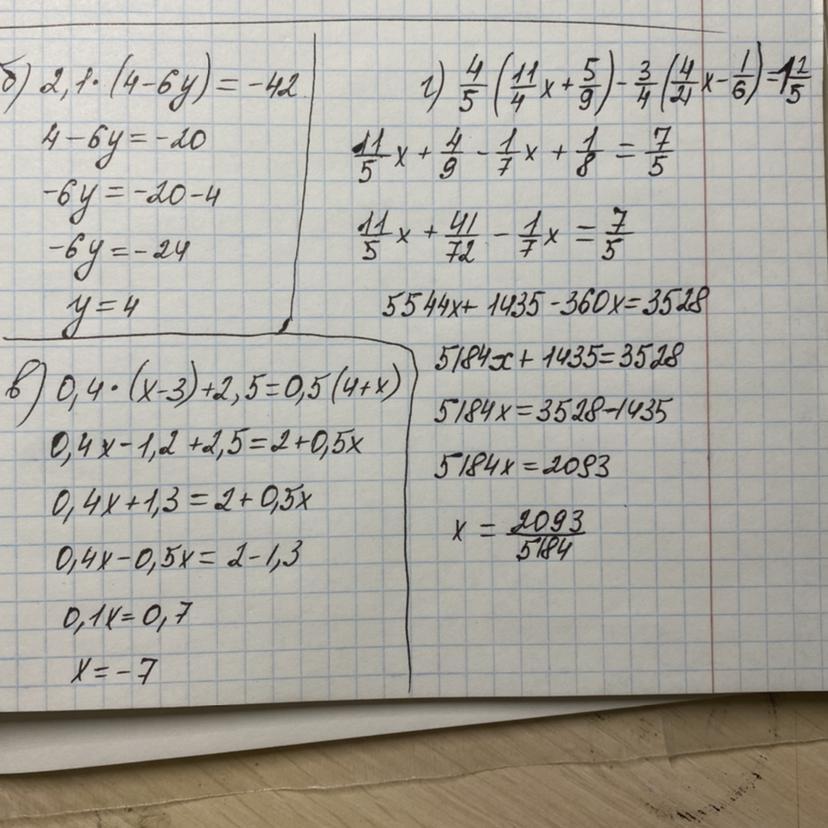 б) 2,1·(4-6y)=-42
4-6y=-20
-6y=-20-4
-6y=-24
y=4
в) 0,4·(x-3)+2,5=0,5(4+x)
0,4x-1,2+2,5=2+0,5x
0,4x+1,3=2+0,5x
0,4x-0,5x=2-1,3
0,1x=0,7
x=-7
г) 4/5(11/4x+5/9)-3/4(4/21x-1/6)=
11/5x+4/9-1/7x+1/8=7/5
11/5x+41/72-1/7x=7/5
5544x+1435-360x=3528
5184x+1435=3528
5184x=3528-1435
5184x=2093
x=2093/5184